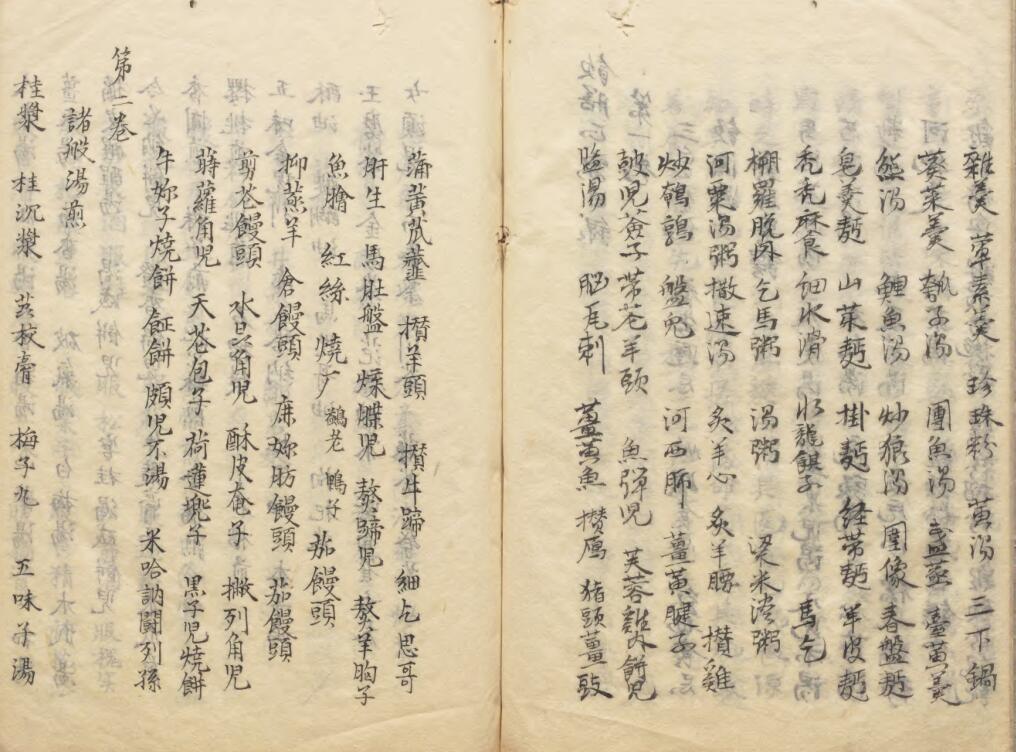 雜羹　葷素羹　珍珠粉　黄湯　三下鍋
葵菜羹　瓠子湯　團魚湯　盞蒸　臺苗羹
熊湯　鯉魚湯　炒狼湯　圍像　春盤麪
皂羹麪　山菜麪　掛麪　経帯麪　羊皮麪
禿禿麻食　細水滑　水龍餌子　馬乞
搠羅脱因　乞馬粥　湯粥　梁米淡粥
河粟湯粥　撒速湯　炙羊心　炙羊腰　攅雞
炒鵪鶉　盤兎　河西肺　薑黄腱子
皷児簽子　帯花羊頭　魚弾児　芙蓉雞　肉餅児
塩湯　脳瓦剌　薑黄魚　攅鴈　猪頭薑豉
蒲黄瓜虀　攅羊頭　攅牛蹄　細乞思哥
肝生　馬肚盤　煠䐑児　熬蹄児　熬羊胸子
魚膾　紅絲　燒广　鵞老　鴨子　茄饅頭
柳蒸羊　倉饅頭　鹿奶肪饅頭　茄饅頭
剪花饅頭　水晶角児　酥皮奄子　撇列角児
蒔蘿角児　天花包子　荷蓮兠子　黒子児燒餅
牛奶子燒餅　鉦餅　頗児不湯　米哈訥闊列孫
第二巻
諸般湯煎
桂漿　桂沉漿　荔枝膏　梅子丸　五味子湯